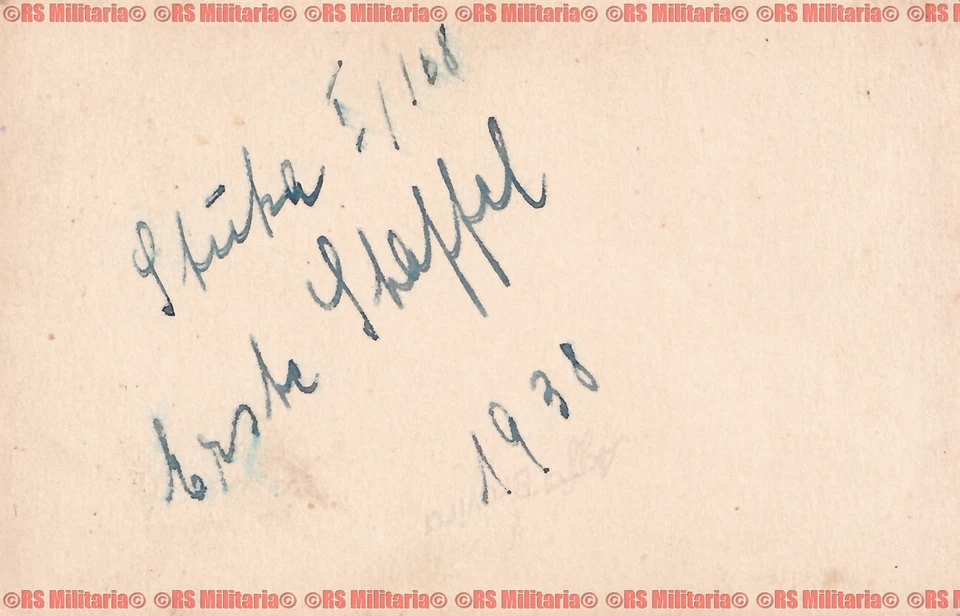 ©RS Militaria© ©RS Militaria© ©RS Militaria© ©RS Militaria© ©RS Militaria© ©RS Militaria© ©RS
Stūka I/168
Erste Staffel
1938
©RS Militaria© ©RS Militaria© ©RS Militaria© ©RS Militaria© ©RS Militaria© ©RS Militaria© ©RS M